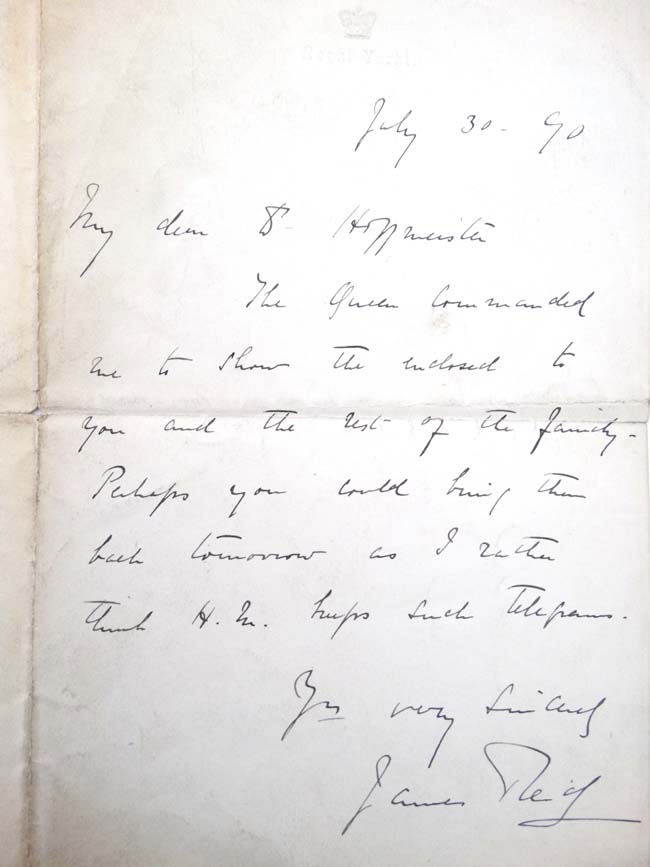 July 30 - 90
My dear Dr Hoffmeister
The Queen Commanded
me to show the enclosed to
you and the rest of the family -
Perhaps you could bring them
back tomorrow as I rather
think H.M. keeps such Telegrams.
Yrs very Sincerely
James Reid